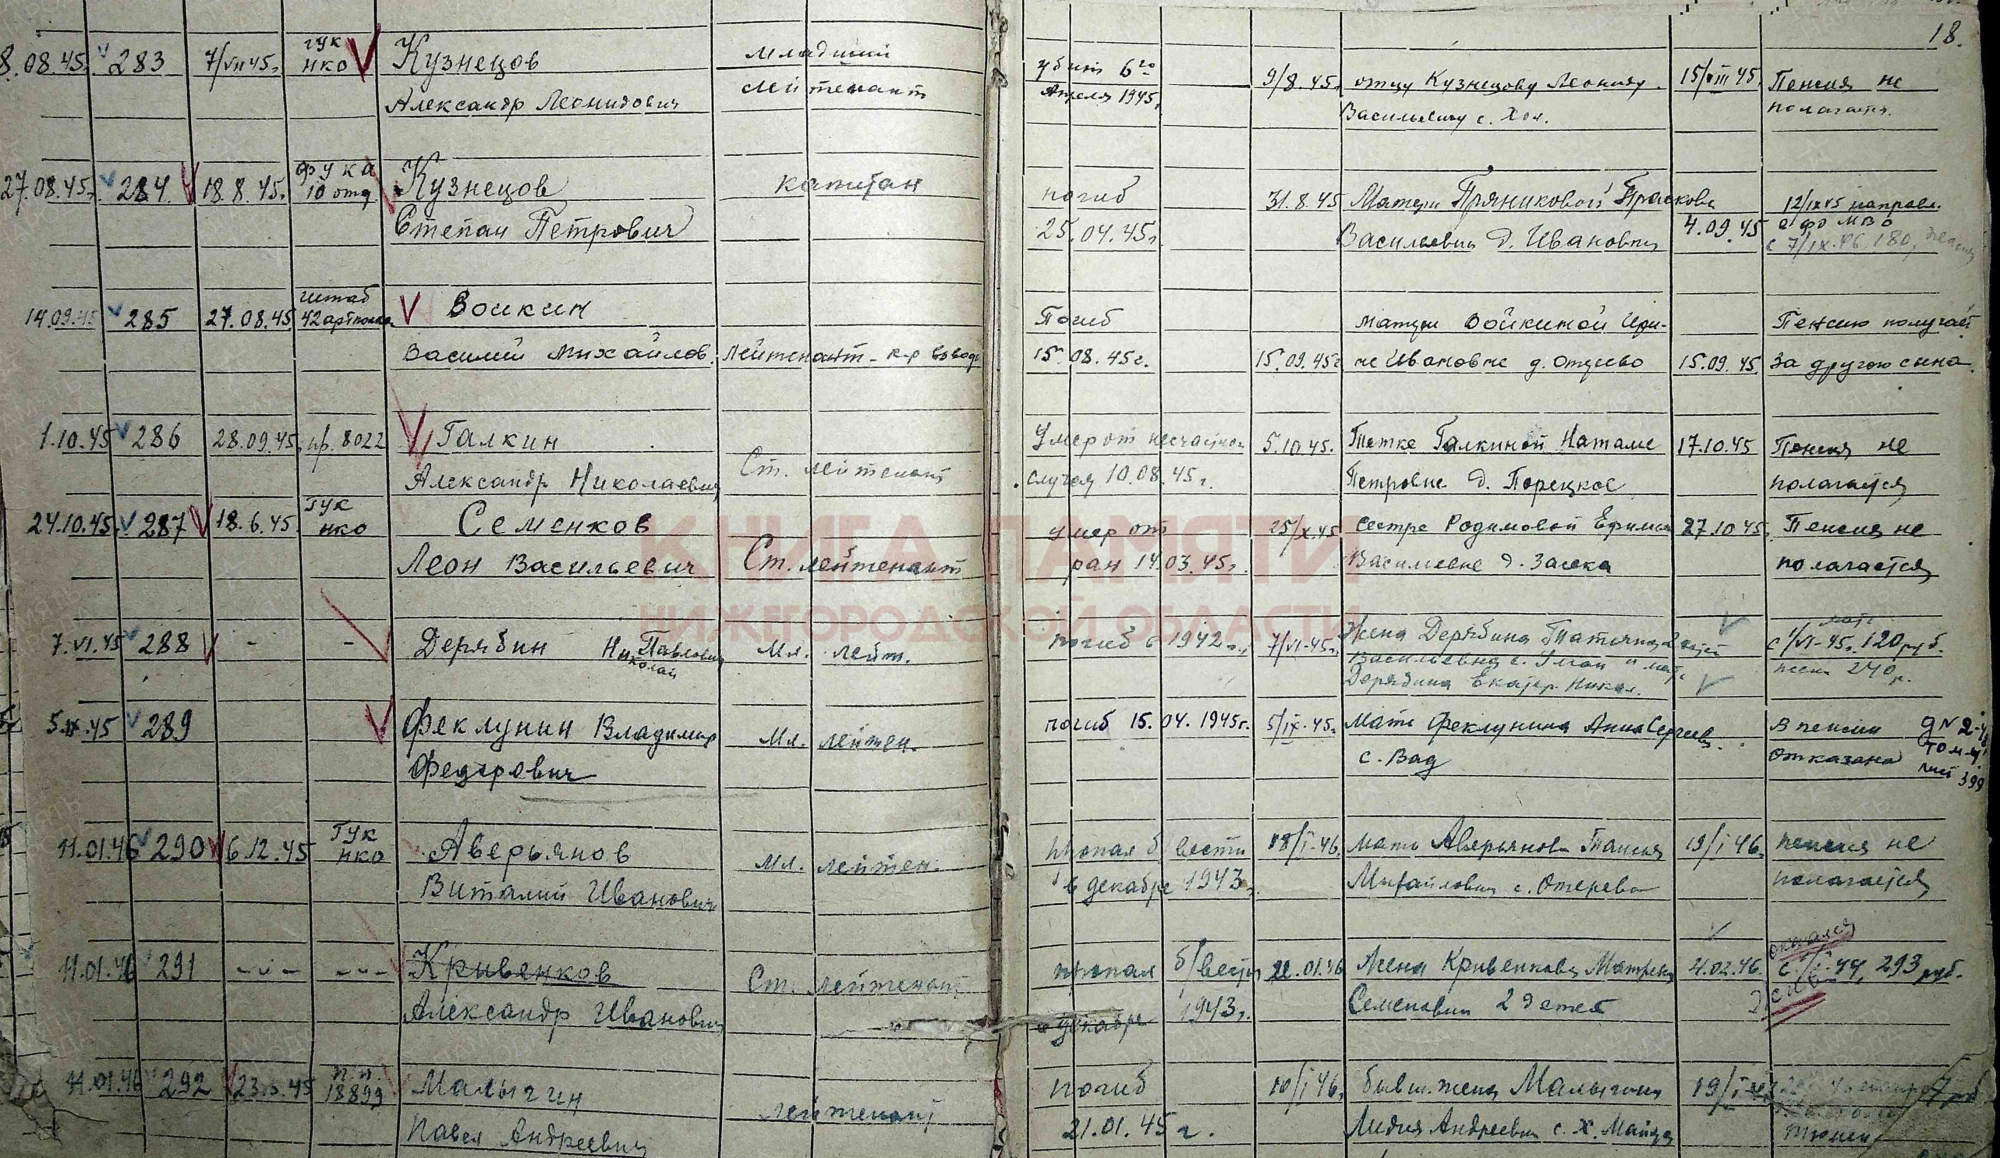 18.
8.08.45. 283 7/VII 45г. ГУК НКО Кузнецов Младший убит 6го 9/8.45г. отцу Кузнецову Леониду 15/VIII 45. Пенсия не
Александр Леонидович лейтенант Апреля 1945г. Васильевичу с. полагается.
27.08.45г. 284 18.8.45г. 10 отд. Кузнецов капитан погиб 31.8.45 Матери Пряниковой Прасков. 12/IX 45 направл.
Степан Петрович 25.04.45г. Васильевне д. 4.09.45 МВО
с 7/IX.46 180,
14.09.45 285 27.08.45 штаб 42 артполка Войкин Погиб матери Войкиной Ири- Пенсию получает
Василий Михайлов. лейтенант - к-р взвода 15.08.45г. 15.09.45г. не Ивановне д. 15.09.45. за другого сына.
1.10.45 286 28.09.45. 8022 Галкин Умер от несчастного 5.10.45. Тетке Галкиной Наталье 17.10.45 Пенсия не
Александр Николаевич Ст. лейтенант случая 10.08.45г. Петровне д. Порецкое полагается
24.10.45. 287 18.6.45. ГУК НКО Семенков умер от 25/X.45 сестре Родимовой Ефимье 27.10.45. Пенсия не
Леон Васильевич Ст. лейтенант ран 14.03.45г. Васильевне д. Засека полагается
КНИГА ПАМЯТИ
НИЖЕГОРОДСКОЙ ОБЛАСТИ
7.VI.45 288 - - Дерябин Николай Павлович Мл. лейт. погиб в 1942г. 7/VI-45г. Жена Дерябина Татьяна 2 детей с 1/VI-45г. 120 руб.
Васильевна с. и мать 240 р.
Дерябина Екатер. Никол.
5.IX.45 289 Феклунин Владимир Мл. лейтен. погиб 15.04.1945г. 5/IX-45г. Мать Феклунина Анна Сергеев. В пенсии
Федорович с. Вад отказана
лист 399
11.01.46 290 6.12.45 ГУК НКО Аверьянов Мл. лейтен. пропал б/вести 18/I-46. мать Аверьянова Таисья 19/I 46. пенсия не
Виталий Иванович в декабре 1943г. Михайловна с. полагается
11.01.46 291 - - - - - - Кривенков Ст. лейтенант пропал б/вести 22.01.46 Жена Кривенкова Матрена 4.02.46. 293 руб.
Александр Иванович в декабре 1943г. Семеновна 2 детей
11.01.46 292 п.п. 18899 Малыгин лейтенант погиб 10/I 46. бывш. жена Малыгина 19/I
Павел Андреевич 21.01.45г. Лидия Андреевна с. Х. Майдан